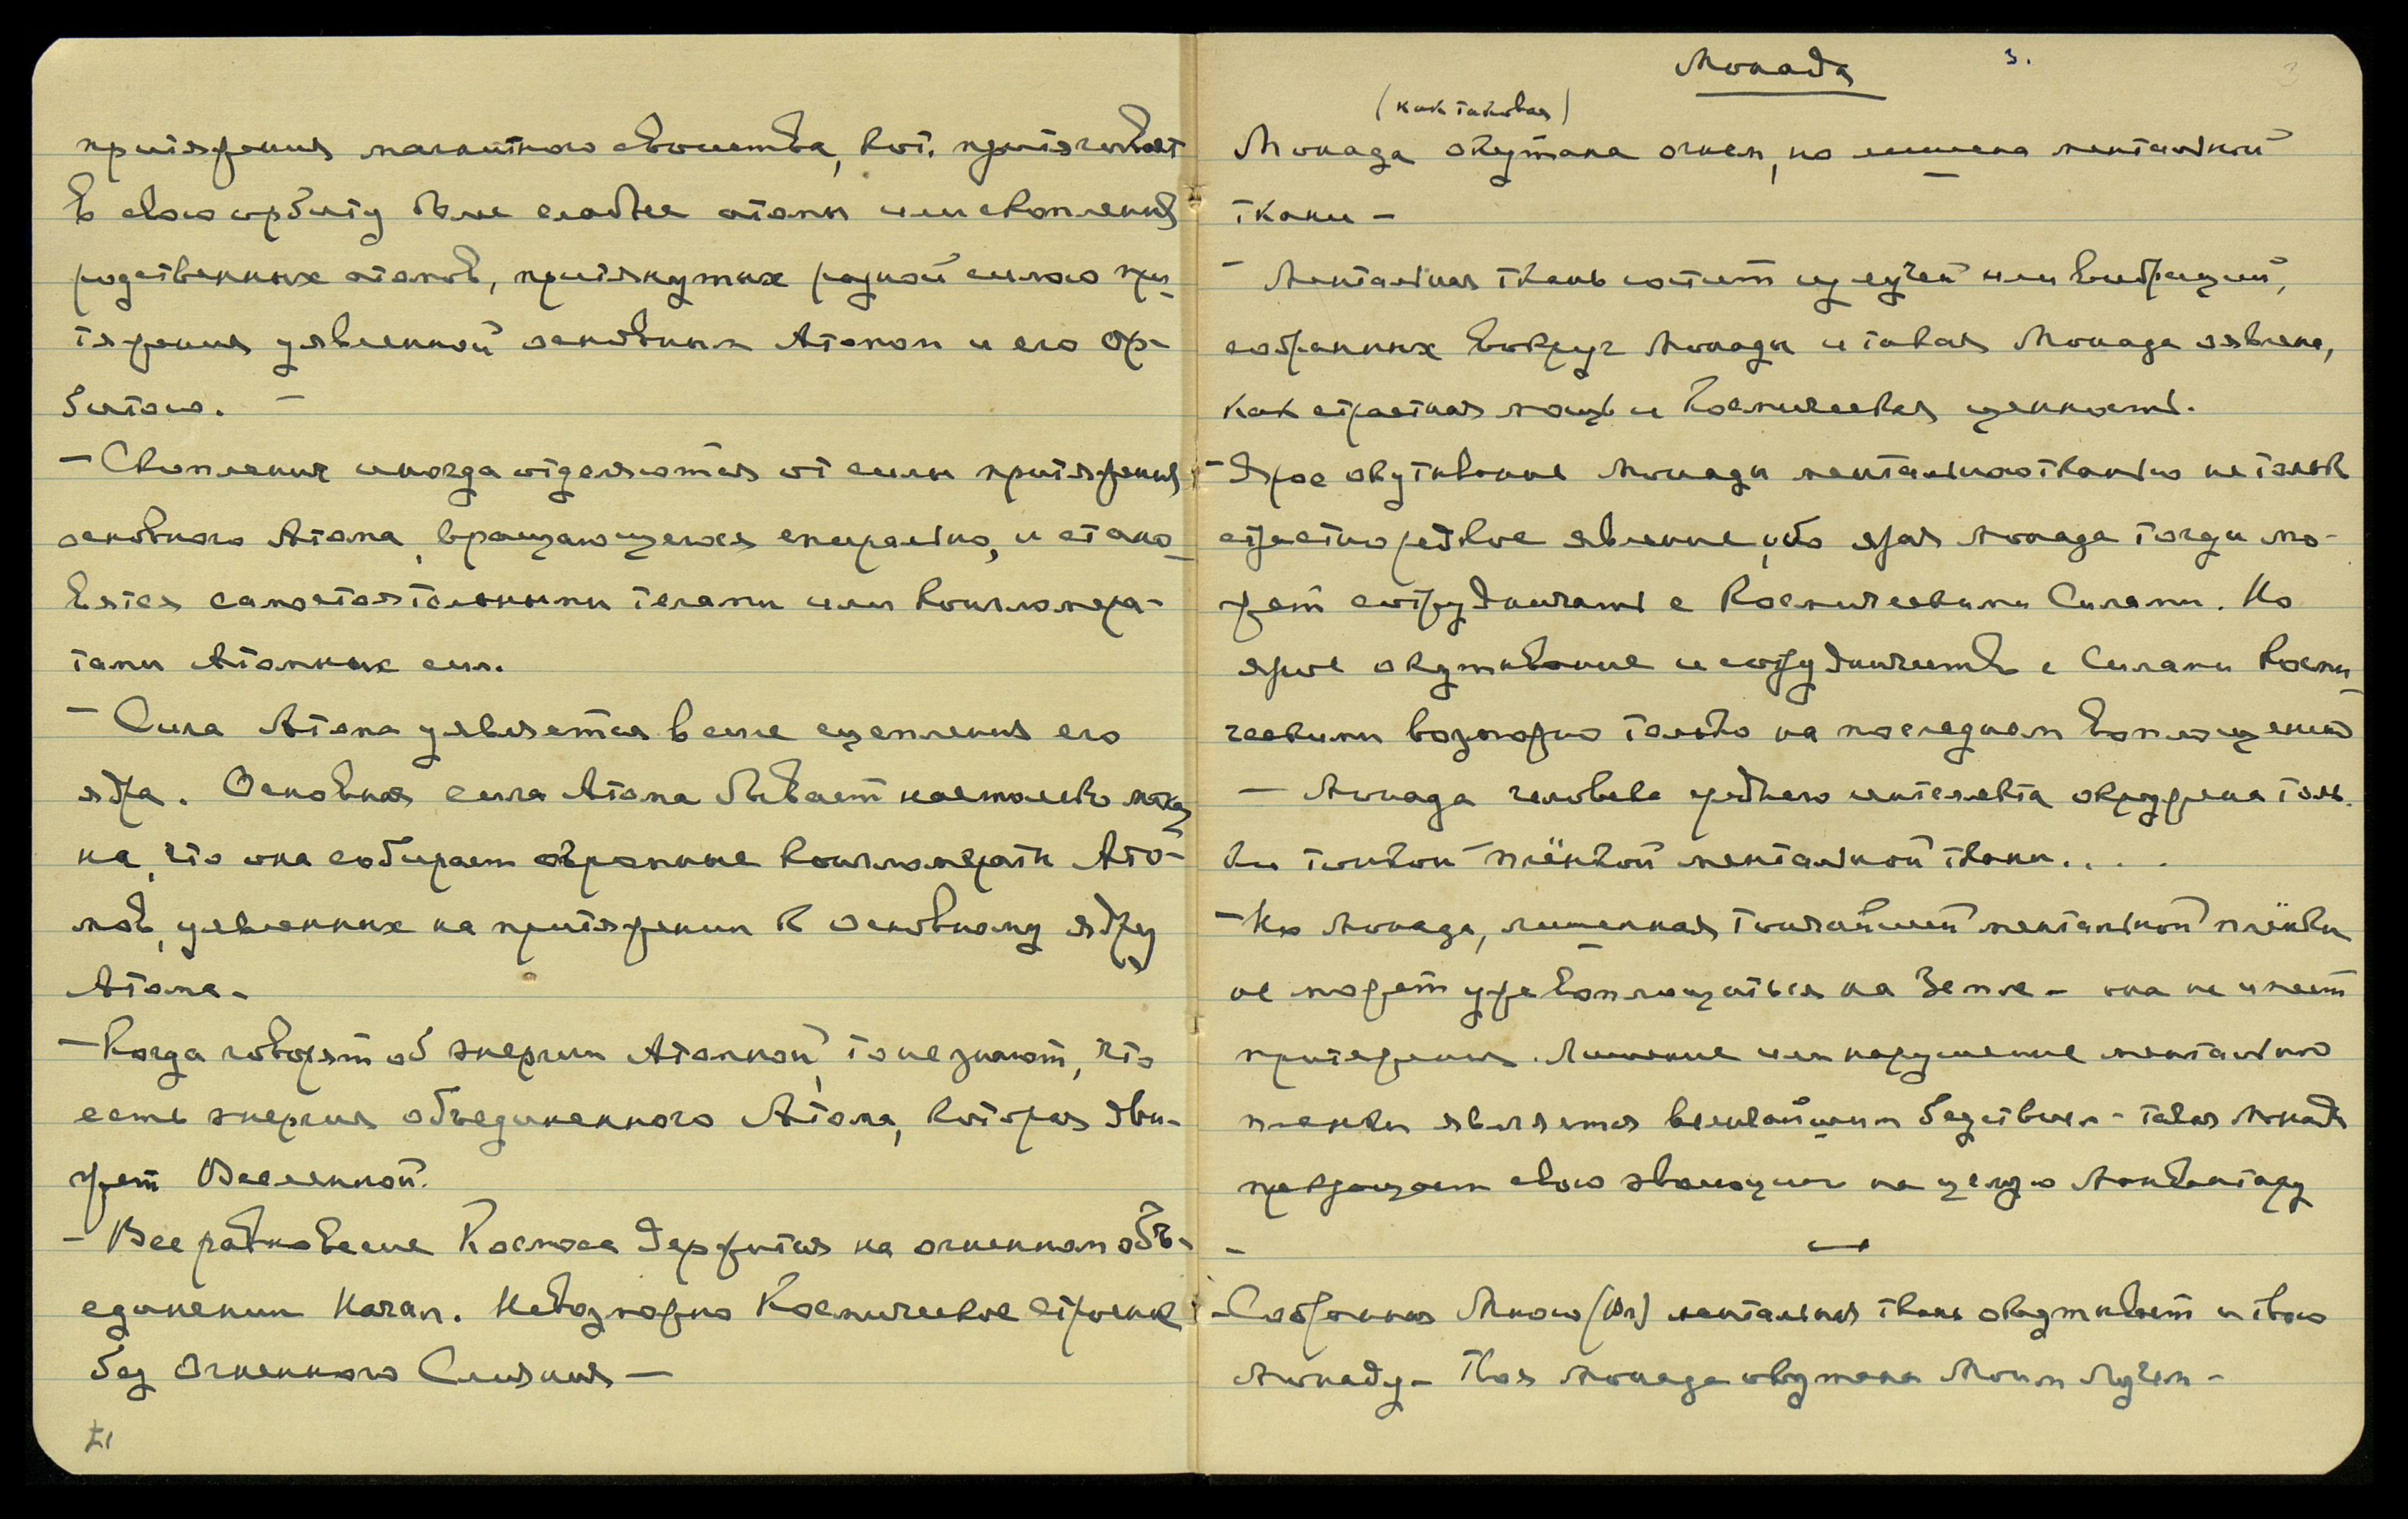 притяжения магнитного свойства, кот. притягивает
в свою орбиту более слабые атомы или скопления
родственных атомов, притянутых родной силою при-
тяжения уявленной основным Атомом и его ор-
битою. –
– Скопления иногда отделяются от силы притяжения
основного Атома, вращающегося спирально, и стано-
вятся самостоятельными телами или конгломера-
тами Атомных сил.
– Сила Атома уявляется в силе сцепления его
ядра. Основная сила Атома бывает настолько мощ-
на, что она собирает огромные конгломераты Ато-
мов, уявленных на притяжении к основному ядру
Атома.
– Когда говорят об энергии Атомной, то не знают, что
есть энергия объединенного Атома, которая дви-
жет Вселенной.
– Все равновесие Космоса держится на огненном объ-
единении Начал. Невозможно Космическое строение
без Огненного Слияния –
Монада 3.
(как таковая)
Монада окутана огнем, но лишена ментальной
ткани –
– Ментальная ткань состоит из лучей или вибраций,
собранных вокруг Монады и такая Монада явлена,
как страстная мощь и Космическая ценность.
– Ярое окутывание Монады ментальною тканью не только
страстно редкое явление, ибо ярая Монада тогда мо-
жет сотрудничать с Космическими Силами. Но
ярое окутывание и сотрудничество с Силами Косми-
ческими возможно только на последнем воплощении
– Монада человека среднего интеллекта окружена толь-
ко тонкой плёнкой ментальной ткани....
– Но Монада, лишенная тончайшей ментальной плёнки
не может уже воплощаться на Земле – она не имеет
притяжения. Лишение или нарушение ментальной
пленки является величайшим бедствием – такая Монада
прекращает свою эволюцию на целую Манвантару
–
– Собранная Мною (Вл) ментальная ткань окутывает и твою
Монаду – Твоя Монада окутана Моим Лучем –